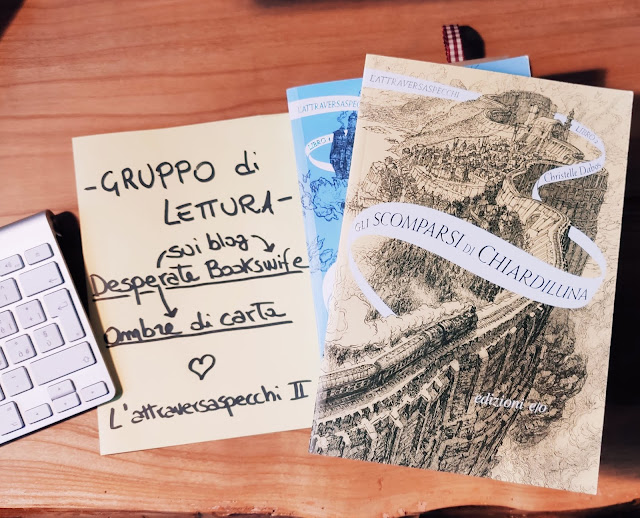 -GRUPPO di
LETTURA-
sui blog
Desperate Bookswife
Ombre di carta
L'attraversaspecchi II
L'ATTRAVERSASPECCHI
LIBRO 1
L'ATTRAVERSASPECCHI
LIBRO 2
Christelle Dabos
GLI SCOMPARSI DI CHIARDILUNA
edizioni e/o